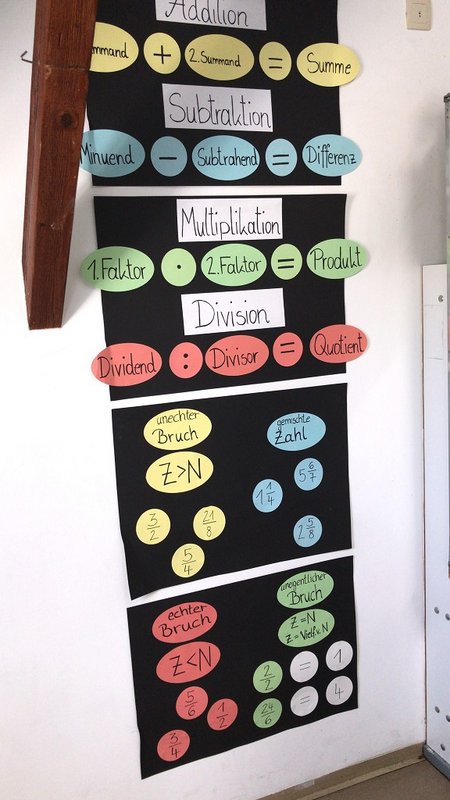 Addition
+ 2. Summand = Summe
Subtraktion
Minuend - Subtrahend = Differenz
Multiplikation
1. Faktor · 2. Faktor = Produkt
Division
Dividend : Divisor = Quotient
unechter
Bruch
Z>N
3/2
21/8
5/4
gemischte
Zahl
5 6/7
1 1/4
2 5/8
echter
Bruch
Z<N
5/6
1/2
3/4
uneigentlicher
Bruch
Z=N
Z=Vielf.v.N
2/2 = 1
24/6 = 4